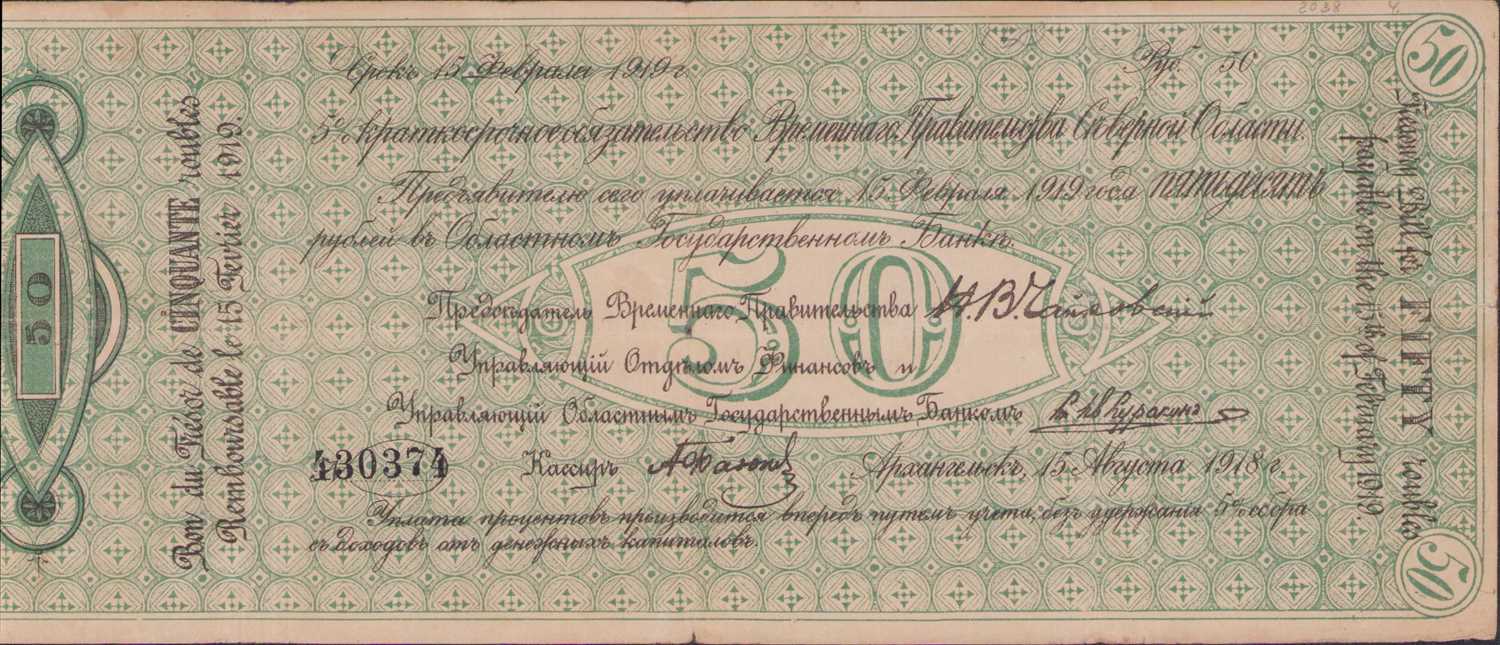 2038 4.
50
Срокъ 15 Февраля 1919 г. Руб. 50
5% краткосрочное обязательство Временнаго Правительства Сѣверной Области.
Предъявителю сего уплачивается 15 Февраля 1919 года пятьдесятъ
рублей въ Областномъ Государственномъ Банкѣ.
50
Предсѣдатель Временнаго Правительства Н. В. Чайковскій
Управляющій Отдѣломъ Финансовъ и
Управляющій Областнымъ Государственнымъ Банкомъ
430374 Кассиръ
Архангельскъ, 15 Августа 1918 г.
Уплата процентовъ производится впередъ путемъ учета, безъ удержанія 5% сбора
съ доходовъ отъ денежныхъ капиталовъ.
50
Bon du Trésor de CINQUANTE roubles
Remboursable le 15 Fevrier 1919.
Treasury Bill for FIFTY roubles
payable on the 15th of February 1919
50